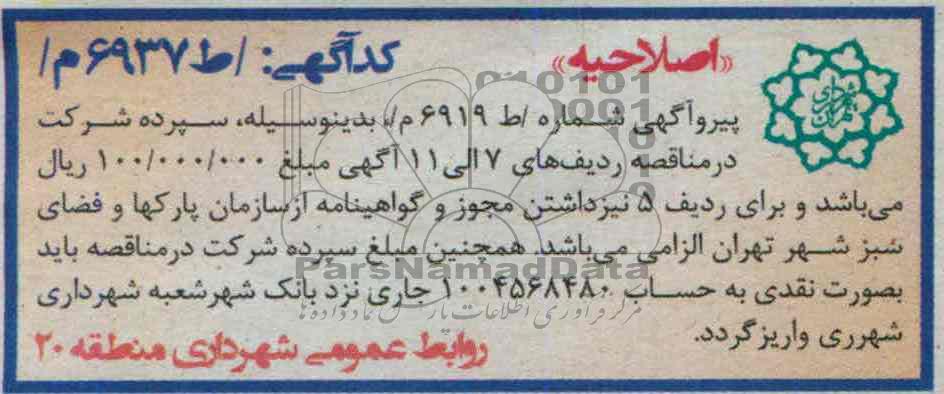 «اصلاحیه»
کدآگهی: /ط ۶۹۳۷ م/
شهرداری تهران
پیروآگهی شماره /ط ۶۹۱۹ م/، بدینوسیله، سپرده شرکت
درمناقصه ردیف‌های ۷ الی ۱۱ آگهی مبلغ ۱۰۰/۰۰۰/۰۰۰ ریال
می‌باشد و برای ردیف ۵ نیزداشتن مجوز و گواهینامه ازسازمان پارکها و فضای
سبز شهر تهران الزامی می‌باشد. همچنین مبلغ سپرده شرکت درمناقصه باید
ParsNamadData
بصورت نقدی به حساب ۱۰۰۴۵۶۸۴۸۰ جاری نزد بانک شهرشعبه شهرداری
شهرری واریزگردد.
روابط عمومی شهرداری منطقه ۲۰